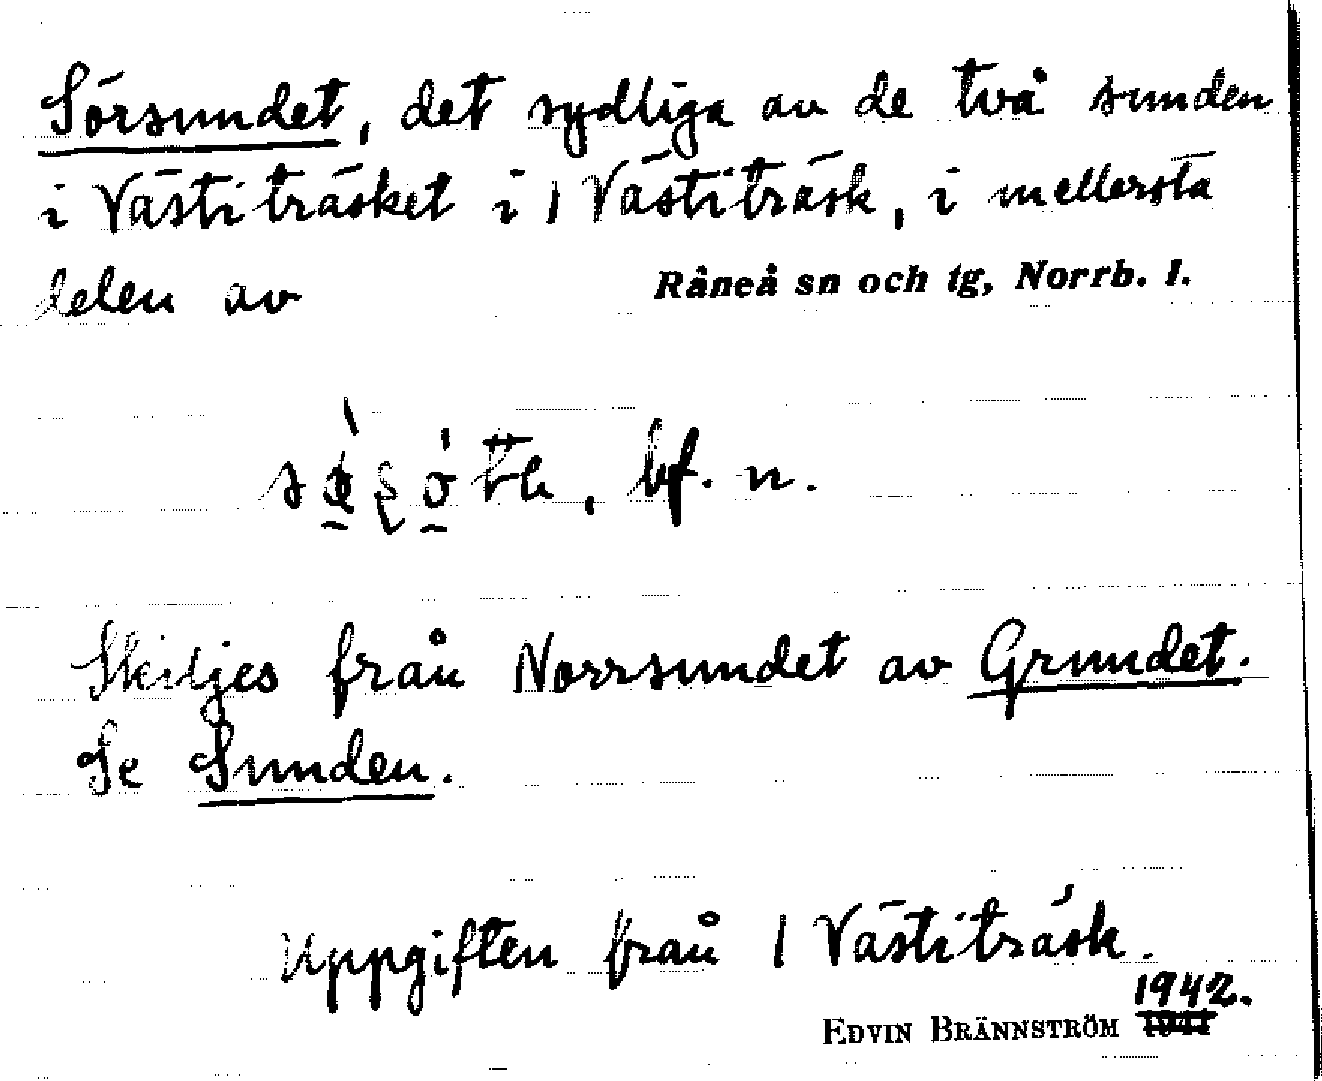 Sörsundet, det sydliga av de två sunden
i Västiträsket i 1 Västiträsk, i mellersta
delen av Råneå sn och tg, Norrb. l.
bf. n.
Skiljes från Norrsundet av Grundet.
Se Sunden.
Uppgiften från 1 Västiträsk.
1942.
EDVIN BRÄNNSTRÖM 1941